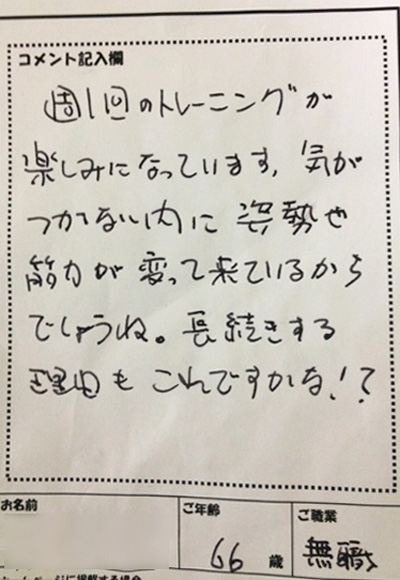 コメント記入欄
週1回のトレーニングが
楽しみになっています。気が
つかない内に姿勢や
筋力が変って来ているから
でしょうね。長続きする
理由もこれですかな!?
お名前
ご年齢
ご職業
66 歳
無職
ホームページに掲載する場合